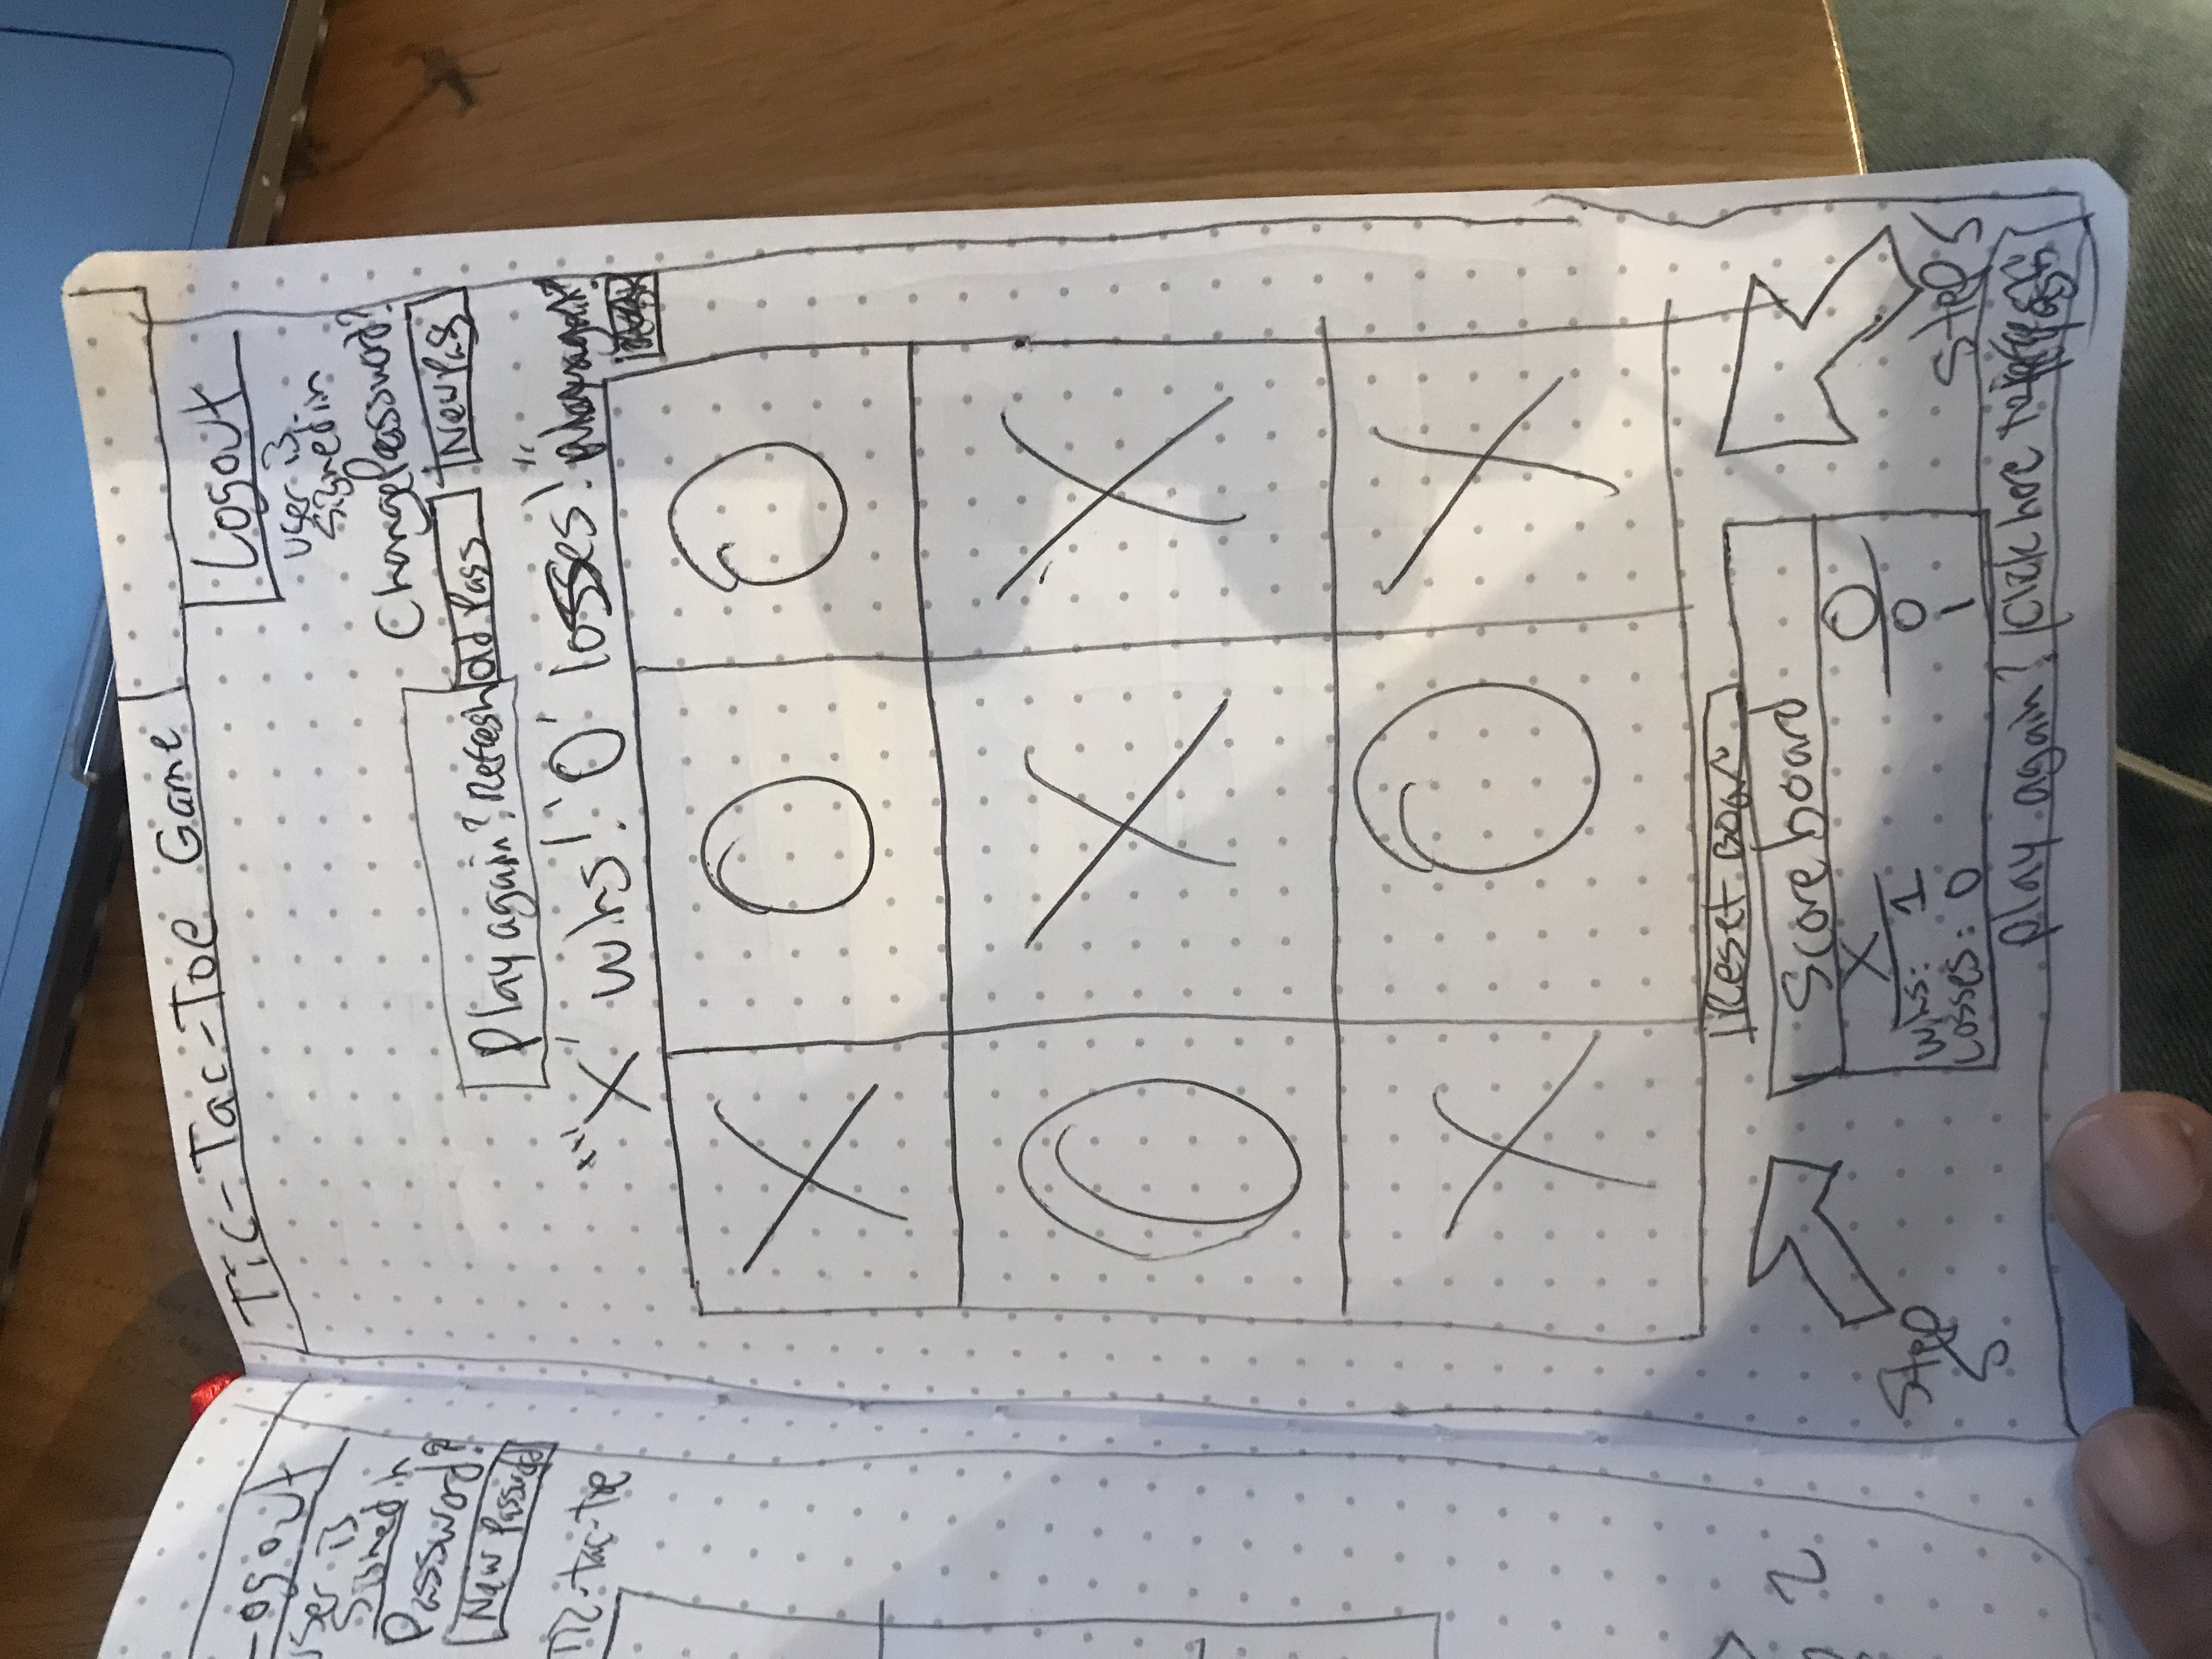 Logout
User is
Signed in
Password?
New Passwod
tac-toe
2
Tic-Tac-Toe Game
Logout
User is
Signed in
Change Password?
Play again? Refresh
Old Pass
New Pass
"'X' wins! 'O' losses!"
X O O
O X X
X O X
Reset Boar
Scoreboard
X O
Wins: 1 0
Losses: 0 1
Step
5
Step 5
Play again? Click here to